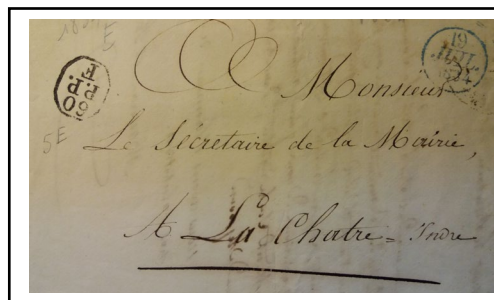 E
60
P.P.
E
19
JUIL
5E
Monsieur
Le Sécretaire de la Mairie,
A La Chatre = Indre